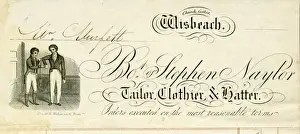 Church Gates
Wisbeach.
Mr
Bot. of Stephen Naylor
Tailor, Clothier, & Hatter.
Orders executed on the most reasonable terms